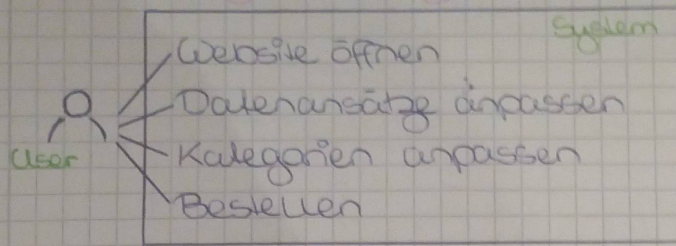 System
Website öffnen
Datenansätze anpassen
Kategorien anpassen
User
Bestellen